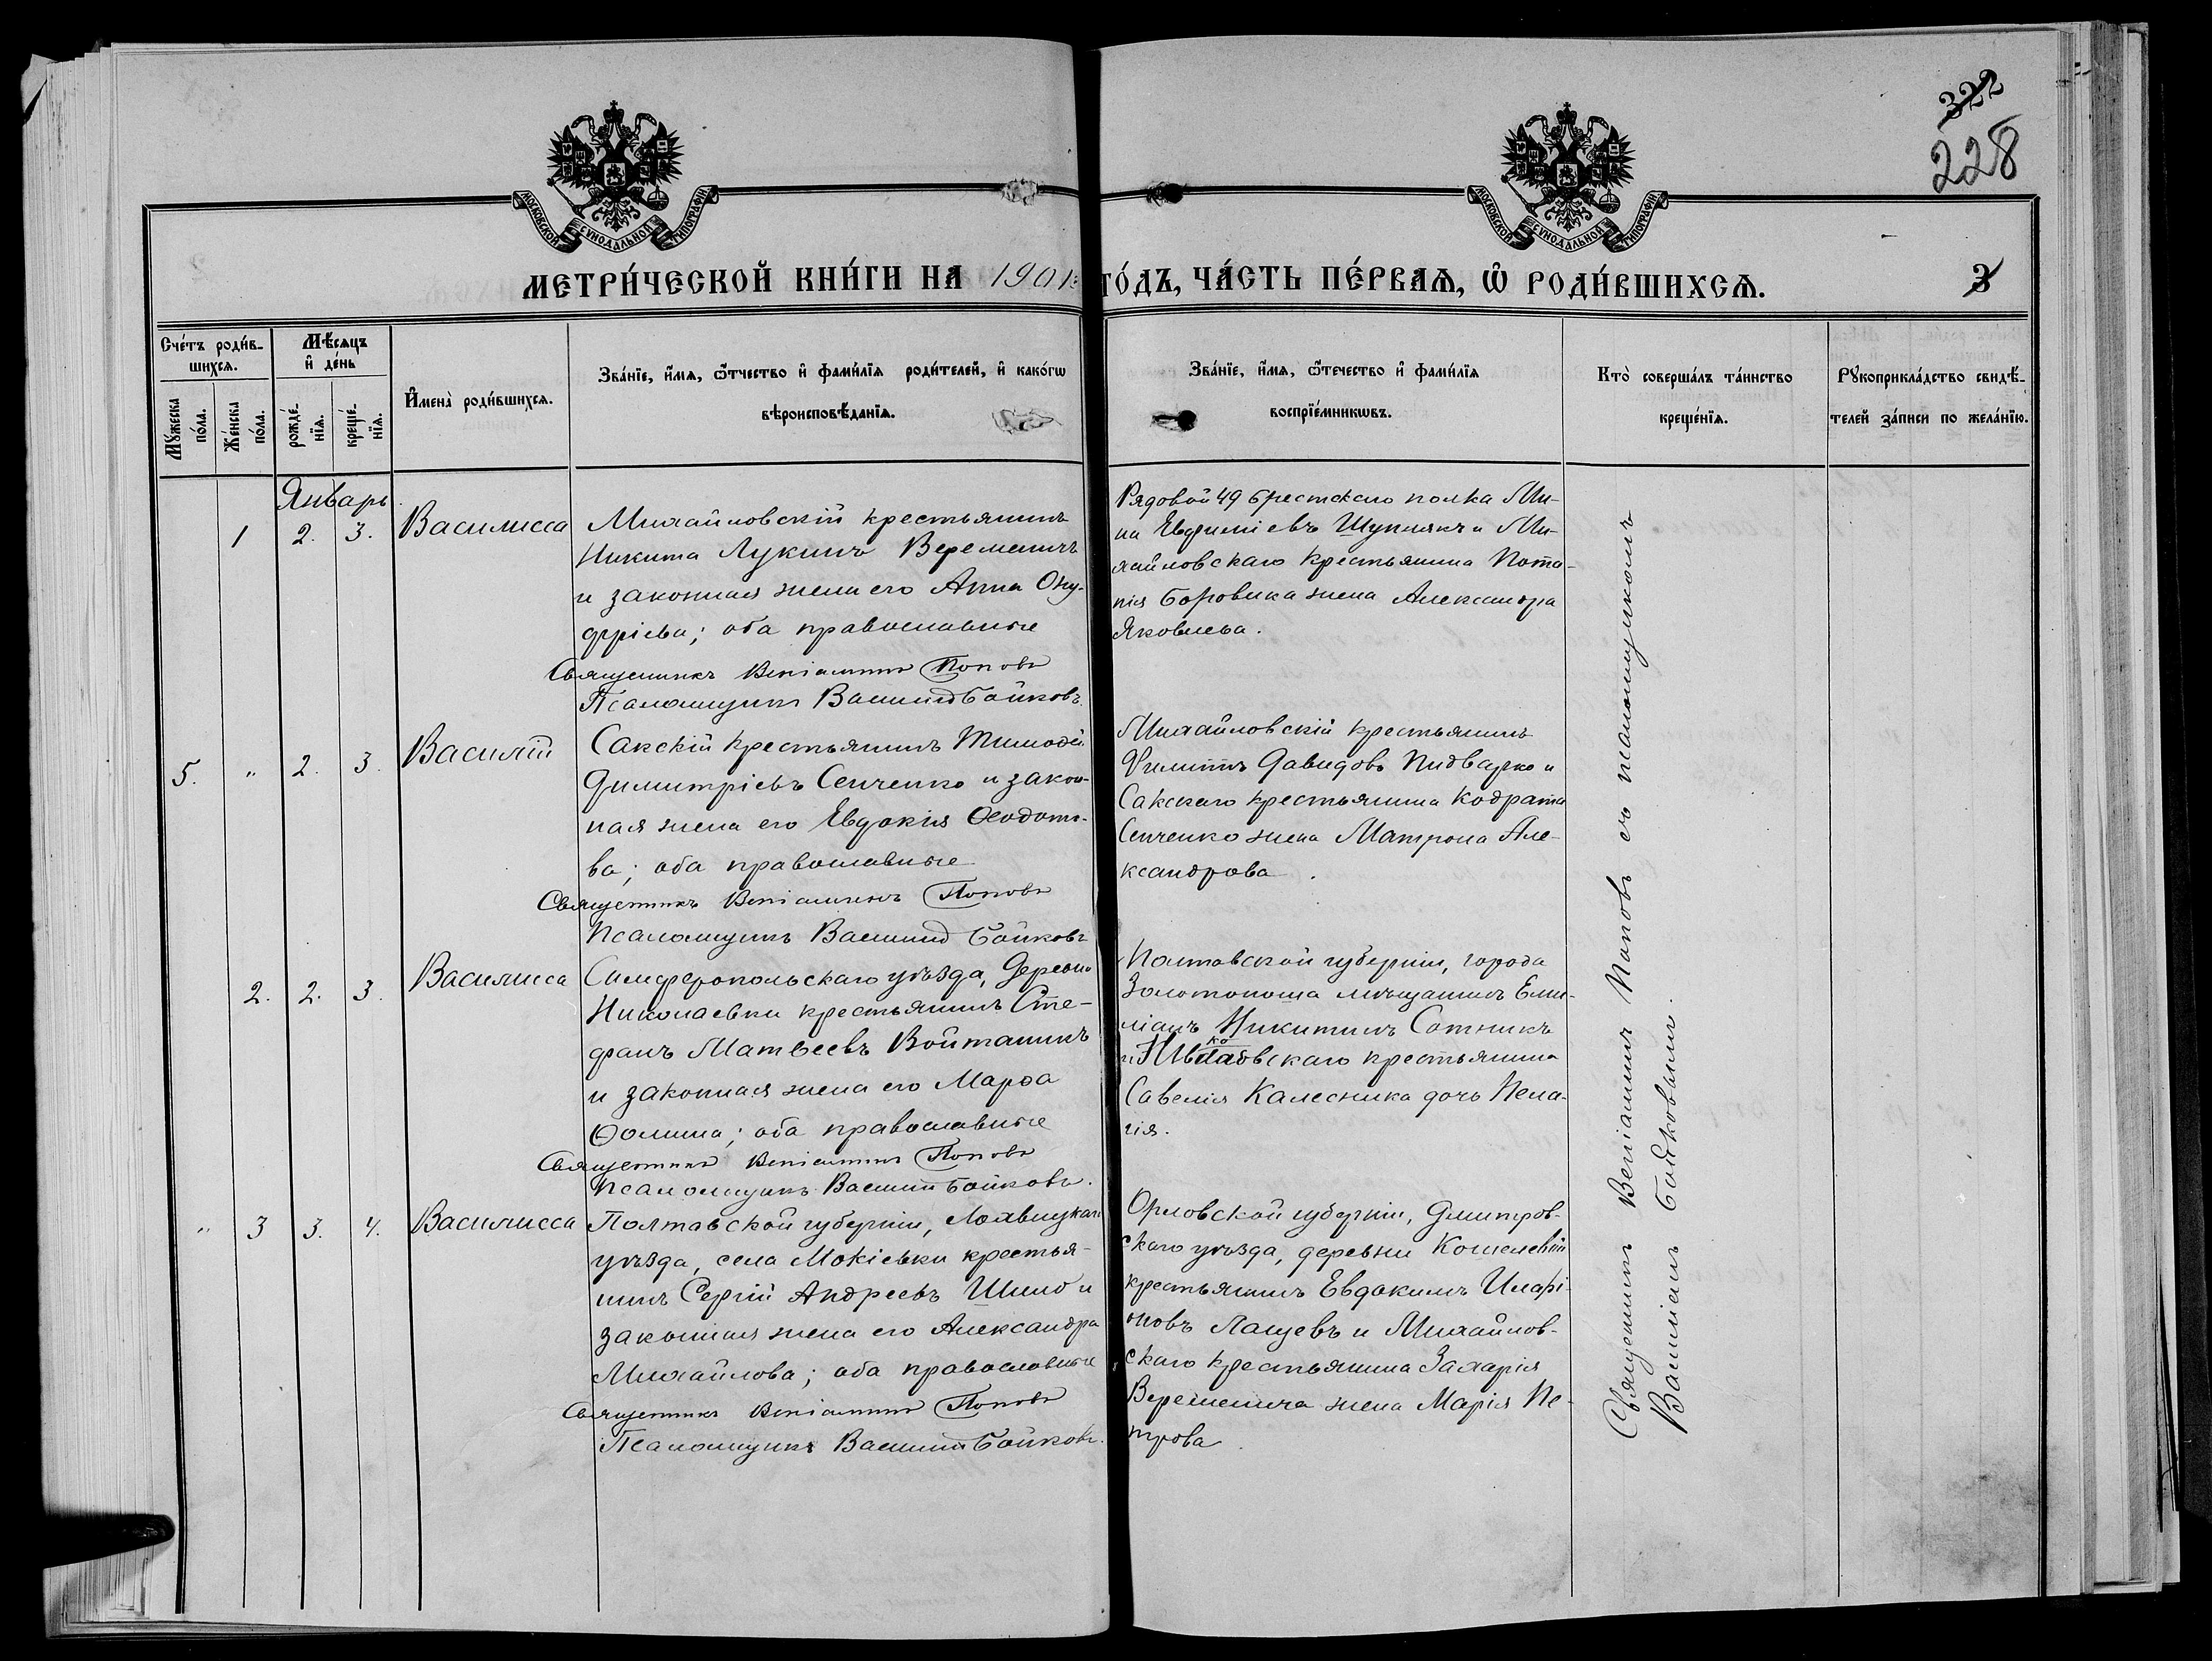 322
228
МОСКОВСКОЙ СѴНОДАЛЬНОЙ ТИПОГРАФІИ
МОСКОВСКОЙ СѴНОДАЛЬНОЙ ТИПОГРАФІИ
МЕТРИ́ЧЕСКОЙ КНИ́ГИ НА 1901 ГО́ДЪ, ЧА́СТЬ ПЕ́РВАѦ, Ѽ РОДИ́ВШИХСѦ.
3
Сче́тъ роди́в-
шихсѧ.
Мѣ́сѧцъ
и҆ де́нь
Мꙋ́жеска
по́ла.
Же́нска
по́ла.
рожде́-
нїѧ.
креще́-
нїѧ.
И҆мена̀ роди́вшихсѧ.
Зва́нїе, и҆́мѧ, ѻ҆́тчество и҆ фами́лїѧ роди́телей, и҆ како́гѡ
вѣроисповѣ́данїѧ.
Зва́нїе, и҆́мѧ, ѻ҆́течество и҆ фами́лїѧ
воспрїе́мникѡвъ.
Кто̀ соверша́лъ та́инство
креще́нїѧ.
Рꙋкоприкла́дство свидѣ́-
телей за́писи по жела́нїю.
Январь
1 2. 3. Василисса
Михайловскій крестьянинъ
Никита Лукинъ Веременичъ
и законная жена его Анна Ону-
фріева; оба православные
Священникъ Веніаминъ Поповъ
Псаломщикъ Василій Бойковъ
Рядовой 49 Брестскаго полка Ми-
на Евфиміевъ Шупнякъ и Ми-
хайловскаго крестьянина Пота-
пія Боровика жена Александра
Яковлева.
5. " 2. 3. Василій
Сакскій крестьянинъ Тимофей
Димитріевъ Сенченко и закон-
ная жена его Евдокія Ѳеодото-
ва; оба православные
Священникъ Веніаминъ Поповъ
Псаломщикъ Василій Бойковъ
Михайловскій крестьянинъ
Филиппъ Давидовъ Пидварко и
Сакскаго крестьянина Кодрата
Сенченко жена Матрона Але-
ксандрова.
2. 2. 3. Василисса
Симферопольскаго уѣзда, деревни
Николаевки крестьянинъ Сте-
фанъ Матвеевъ Войтаникъ
и законная жена его Марѳа
Ѳомина; оба православные
Священникъ Веніаминъ Поповъ
Псаломщикъ Василій Бойковъ.
Полтавской губерніи, города
Золотоноша мѣщанинъ Еми-
ліанъ Никитинъ Сотникъ
ко
крестьянина
Савелія Калесника дочь Пела-
гія.
" 3 3. 4. Василисса
Полтавской губерніи, Лохвицкаго
уѣзда, села Мокіевки крестья-
нинъ Сергій Андреевъ Шило и
законная жена его Александра
Михайлова; оба православные
Священникъ Веніаминъ Поповъ
Псаломщикъ Василій Бойковъ.
Орловской губерніи, Дмитров-
скаго уѣзда, деревни
крестьянинъ Евдокимъ Иларі-
оновъ Лащевъ и Михайлов-
скаго крестьянина Захарія
Веременича жена Марія Пе-
трова.
Священникъ Веніаминъ Поповъ съ псаломщикомъ
Василіемъ Бойковымъ.